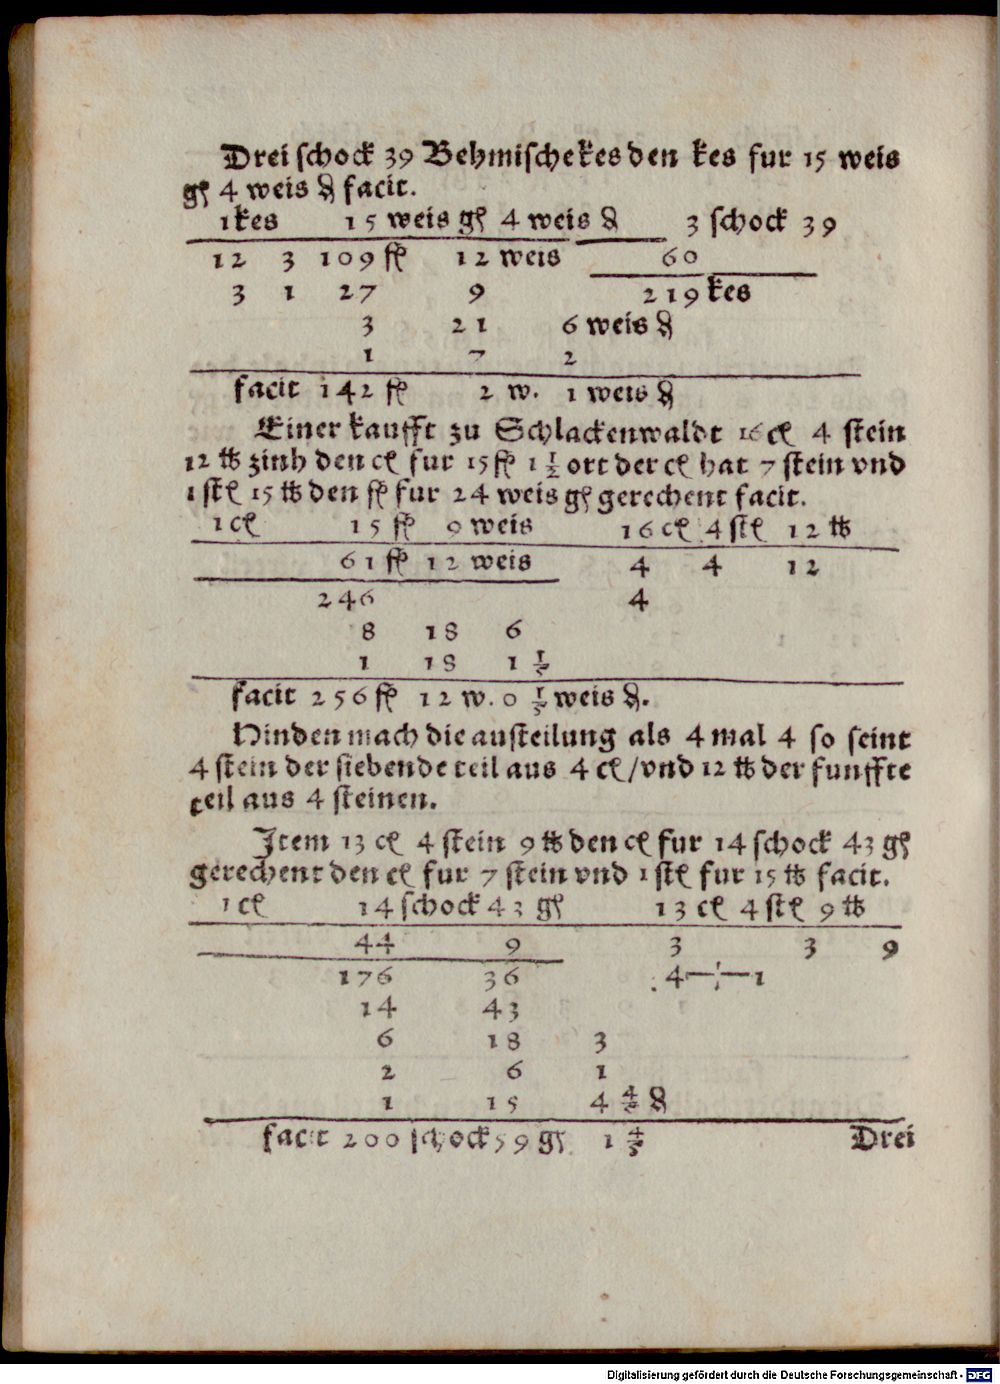 Drei schock 39 Behmische kes den kes fur 15 weis
gſ 4 weis ₰ facit.
1 kes 15 weis gſ 4 weis ₰ 3 schock 39
12 3 109 fſ 12 weis 60
3 1 27 9 219 kes
3 21 6 weis ₰
1 7 2
facit 142 fſ 2 w. 1 weis ₰
Einer kaufft zu Schlackenwaldt 16 cſ 4 stein
12 ℔ zinh den cſ fur 15 fſ 1 1/2 ort der cſ hat 7 stein vnd
1 stſ 15 ℔ den fſ fur 24 weis gſ gerechent facit.
1 cſ 15 fſ 9 weis 16 cſ 4 stſ 12 ℔
61 fſ 12 weis 4 4 12
246 4
8 18 6
1 18 1 1/5
facit 256 fſ 12 w. 0 1/5 weis ₰.
Hinden mach die austeilung als 4 mal 4 so seint
4 stein der siebende teil aus 4 cſ/vnd 12 ℔ der funffte
teil aus 4 steinen.
Item 13 cſ 4 stein 9 ℔ den cſ fur 14 schock 43 gſ
gerechent den cſ fur 7 stein vnd 1 stſ fur 15 ℔ facit.
1 cſ 14 schock 43 gſ 13 cſ 4 stſ 9 ℔
44 9 3 3 9
4 —÷— 1
176 36
14 43
6 18 3
2 6 1
1 15 4 4/5 ₰
facit 200 schock 59 gſ 1 4/5 Drei
Digitalisierung gefördert durch die Deutsche Forschungsgemeinschaft - DFG